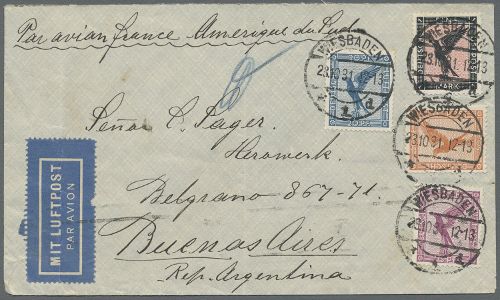 Par avion france Amérique du Sud
WIESBADEN
23.10.31. 12-13
1 d
WIESBADEN
23.10.31. 12-13
MARK
WIESBADEN
23.10.31 12-13
WIESBADEN
23.10.31 12-13
Señor C. Sager.
Herowerk.
Belgrano 867-71
Buenos Aires
Rep. Argentina
MIT LUFTPOST
PAR AVION